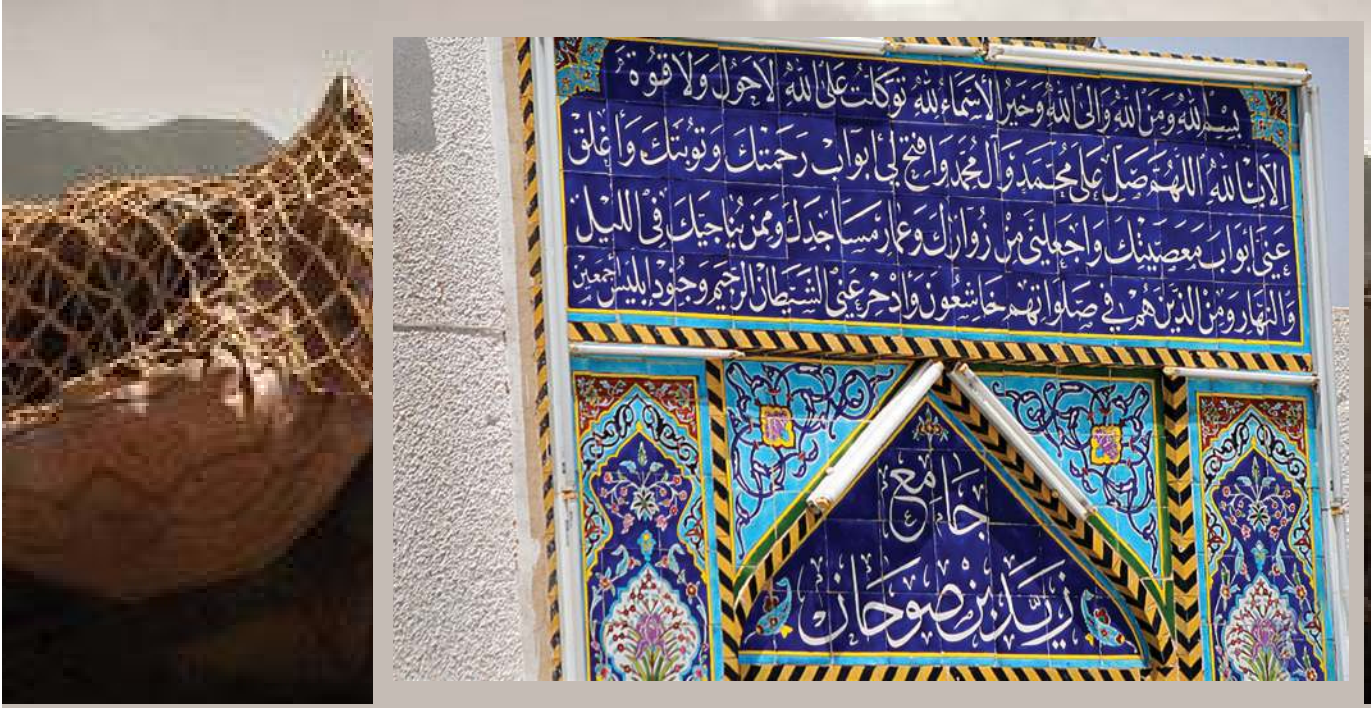 بسم لله ومن لله والى لله وخير الأسماء لله توكلت على لله لا حول ولا قوة
الا بالله اللهم صل على محمد وآل محمد وافتح لي ابواب رحمتك وتوبتك واغلق
عني ابواب معصيتك واجعلني من زوارك وعمار مساجدك وممن يناجيك في الليل
والنهار ومن الذين هم في صلواتهم خاشعون وادحر عني الشيطان الرجيم وجنود ابليس اجمعين
جامع
زيد بن صوحان